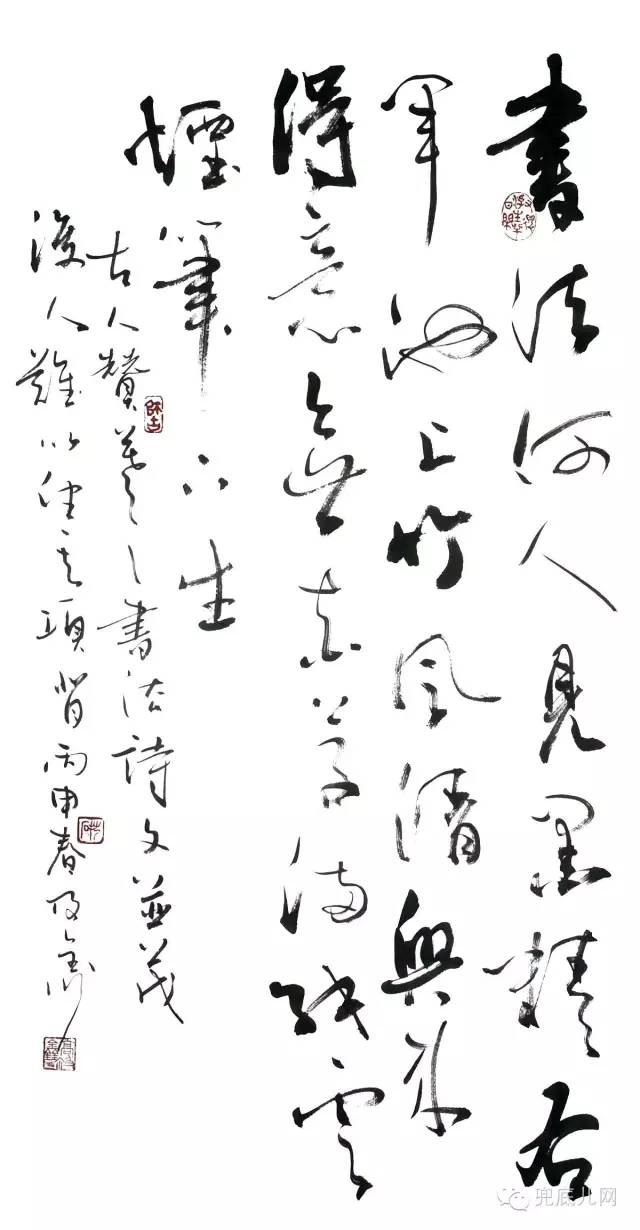 書法何人見墨精右
軍池上竹風清興來
得意無真草滿紙雲
煙筆下生
古人贊羲之書法詩文並茂
後人難以望其項背丙申春
師古
兜底儿网